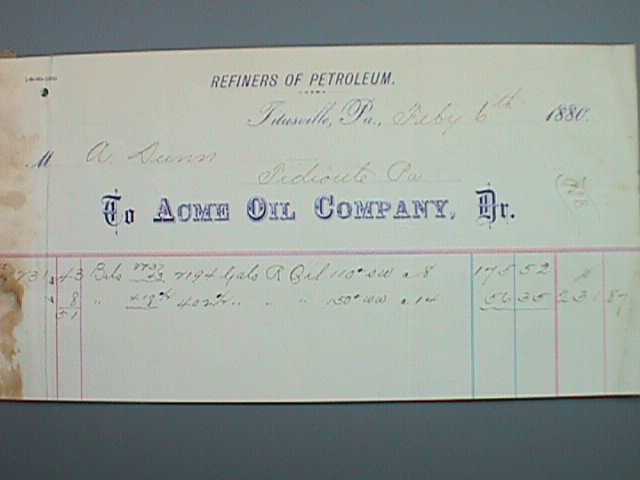 REFINERS OF PETROLEUM.
Titusville, Pa., Feby 6th 1880.
M A. Dunn
Tidioute Pa
To ACME OIL COMPANY, Dr.
43 Bbls 2194 Gals R Oil 110° SW a 8 175 52
8 " 402½ " " " 150° WW a 14 56 35 231 87
51